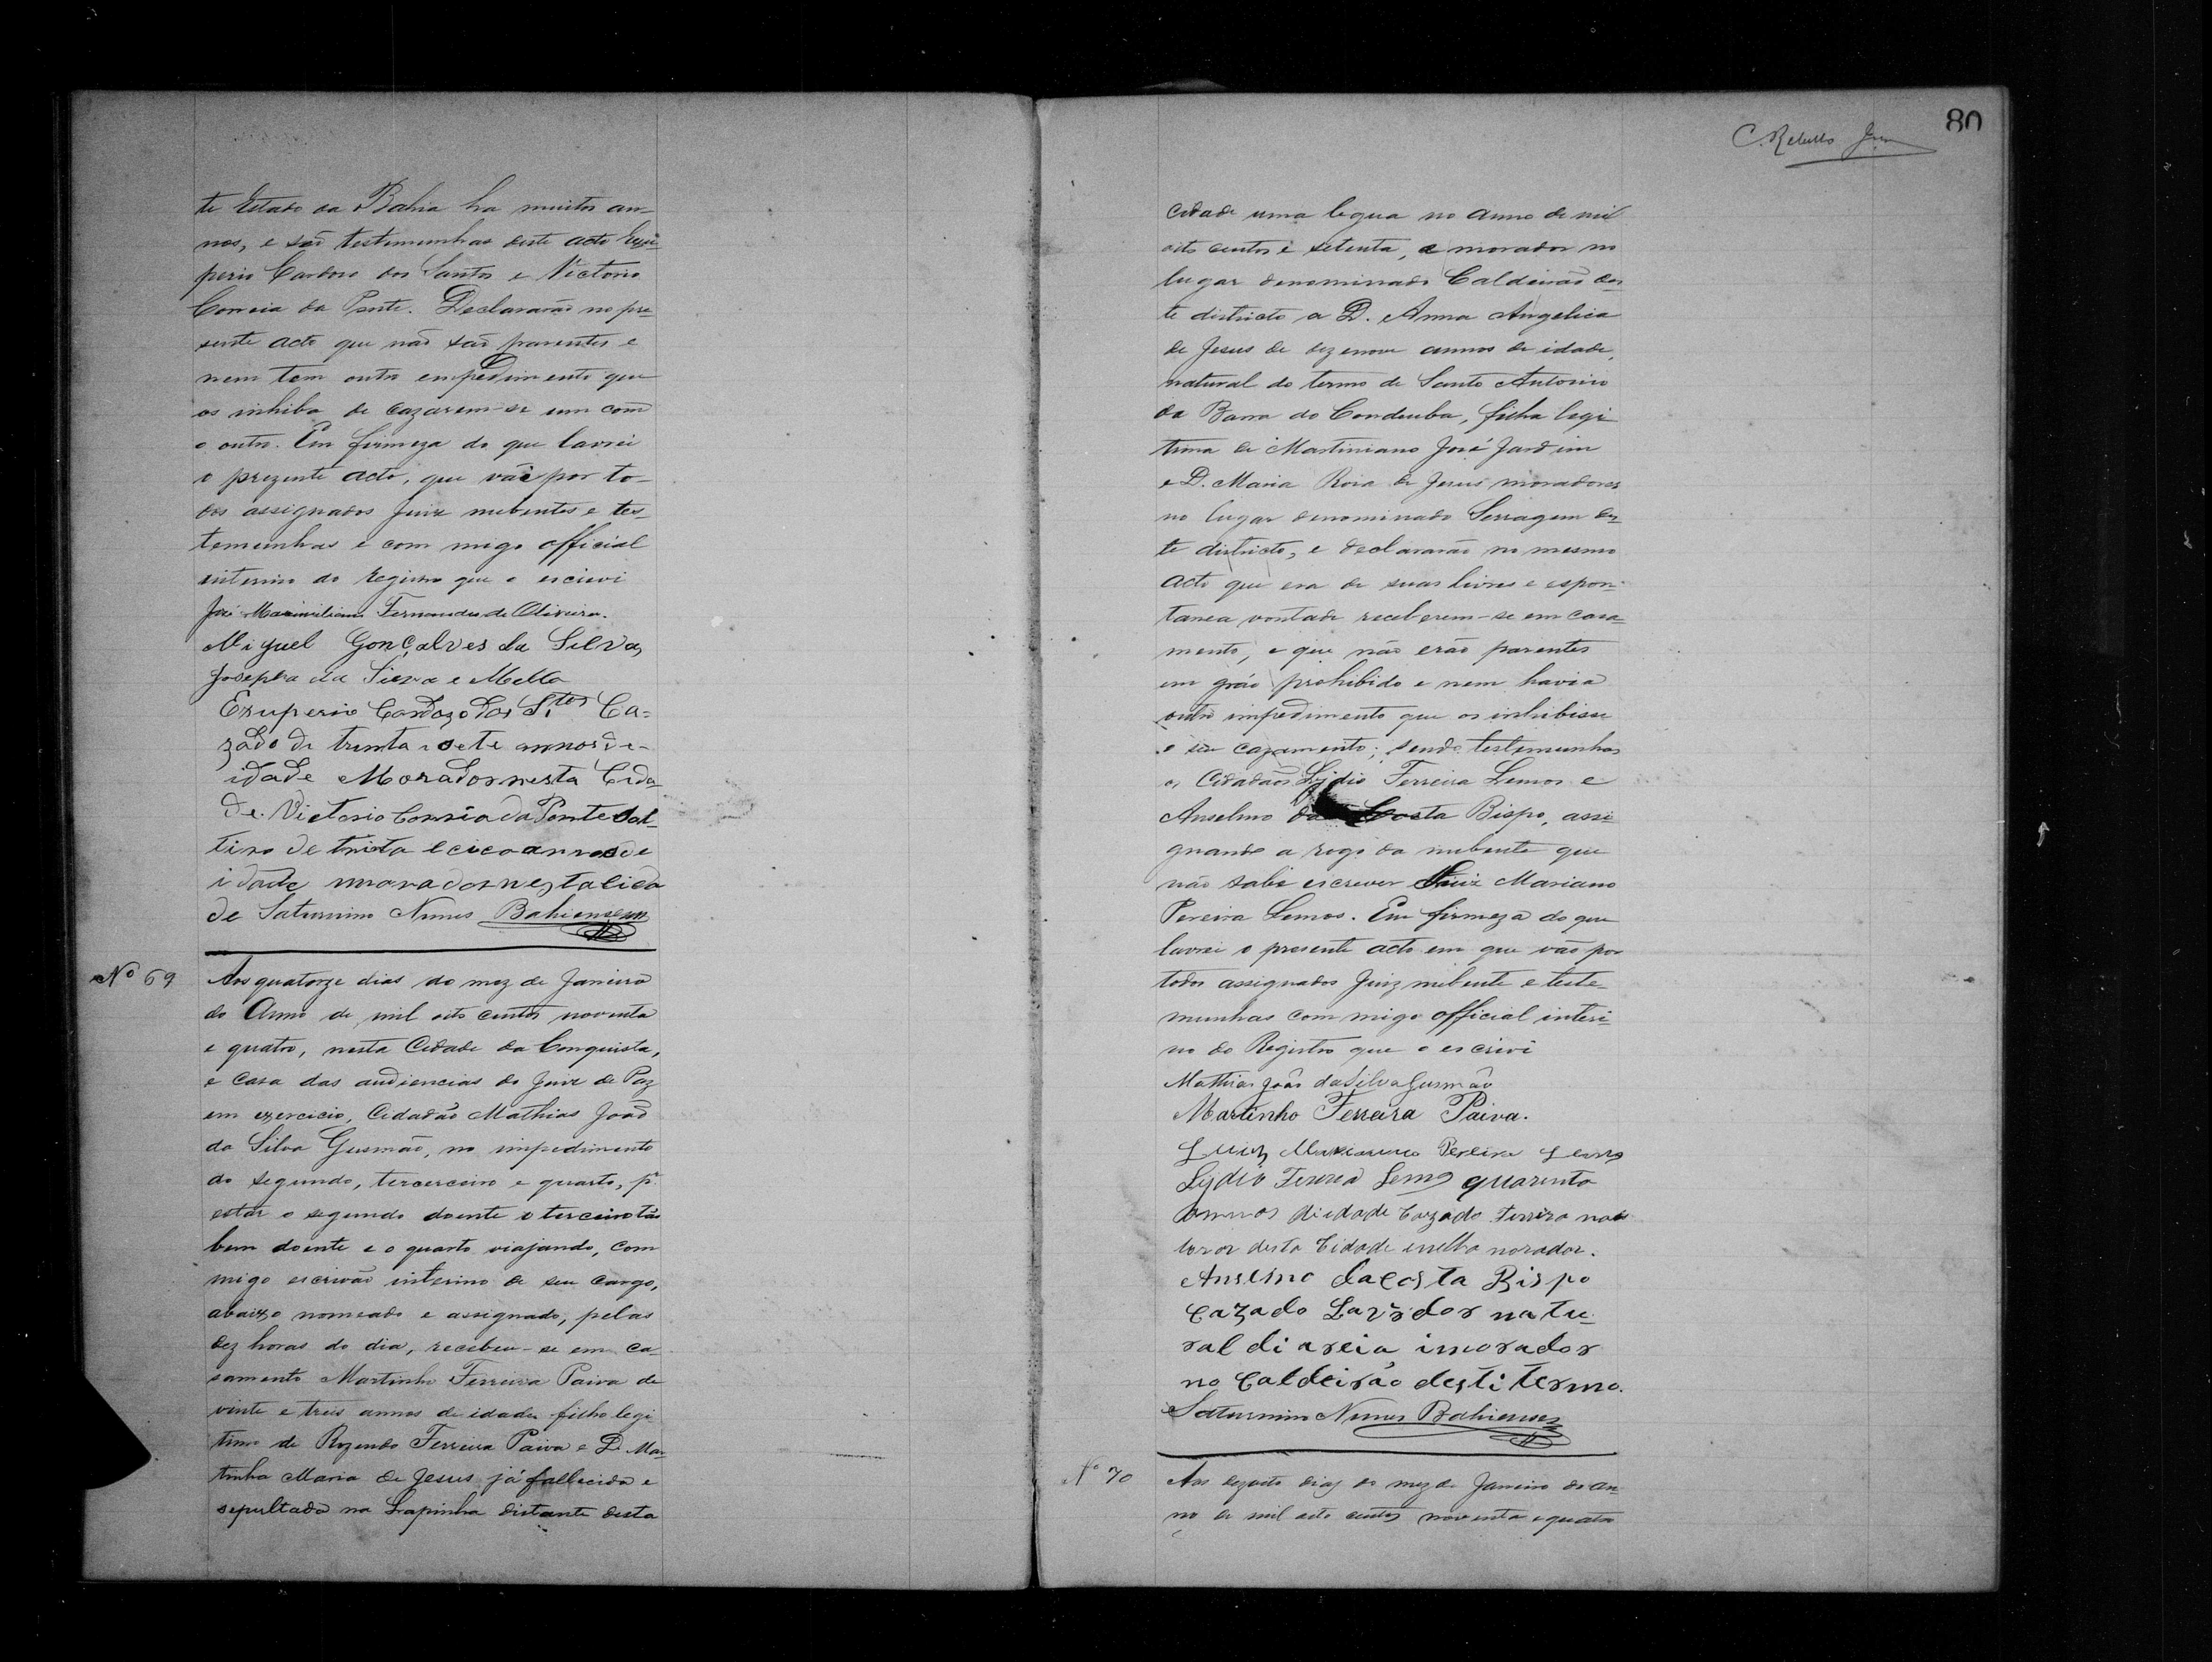 te Estado da Bahia ha muitos an-
nos, e são testemunhas deste acto Exu-
perio Cardoso dos Santos e Victorio
Correia da Ponte. Declararão no pre-
sente acto que não são parentes e
nem tem outro empedimento que
os inhiba de cazarem-se um com
o outro. Em firmeza do que lavrei
o prezente acto, que vãe por to-
dos assignados Juiz nubentes e tes-
temunhas e com migo official
interino do registro que o escrevi
José Maximiliano Fernandes de Oliveira.
Miguel Gonçalves da Silva
Josepha da e Mello
Exuperio Cardozo dos S.tos Ca-
zado de trinta e sete annos de
idade Morador nesta Cida-
de. Victorio Correia da Ponte Sol-
tiro de trinta e cico annos de
idade morador nesta cida
de Saturnino Nunes Bahiense
Nº 69
Aos quatorze dias do mez de Janeiro
do Anno de mil oito centos noventa
e quatro, nesta Cidade da Conquista,
e casa das audiencias do Juiz de Paz
em exercicio, Cidadão Mathias João
da Silva Gusmão, no impedimento
do segundo, tercerceiro e quarto, pr.
estar o segundo doente o terceiro tão
bem doente e o quarto viajando, com
migo escrivão interino de seu cargo,
abaixo nomeado e assignado, pelas
dez horas do dia, recebeu-se em ca-
samento Martinho Ferreira Paiva de
vinte e treis annos de idade filho legi
timo de Rozendo Ferreira Paiva e D. Mar-
tinha Maria de Jesus já fallecida e
sepultada na Lapinha distante desta
80
C. Rebello
cidade uma legua no anno de mil
oito centos e setenta, e morador no
lugar denominado Caldeirão des-
te districto a D. Anna Angelica
de Jesus de dezenove annos de idade,
natural do termo de Santo Antonio
da Barra do Condeuba, filha legi
tima de Martiniano José Jardim
e D. Maria Roza de Jesus moradores
no lugar denominado Serragem des-
te districto, e declararão no mesmo
acto que era de suas livres e espon-
tanea vontade receberem-se em casa-
mento, e que não erão parentes
em gráo prohibido e nem havia
outro impedimento que os inhibisse
o seu cazamento; sendo testemunhas
os Cidadãos Lydio Ferreira Lemos e
Anselmo da Costa Bispo, assi-
gnando a rogo da nubente que
não sabe escrever Luiz Mariano
Pereira Lemos. Em firmeza do que
lavrei o presente acto em que vão por
todos assignados Juiz nubente e teste-
munhas com migo official interi-
no do Registro que o escrivi
Mathias João da Silva Gusmão
Martinho Ferreira Paiva.
Luiz Marianno Pereira Lemos
Lydio Ferreira Lemos quarenta
annos di idade Cazado Ferrero na
desta Cidade e nella morador.
Anselmo da Costa Bispo
Cazado Lavrador natu-
ral di areia imorador
no Caldeirão desti termo.
Saturnino Nunes Bahiense
Nº 70
Aos dezoito dias do mez de Janeiro do an-
no de mil oito centos noventa e quatro